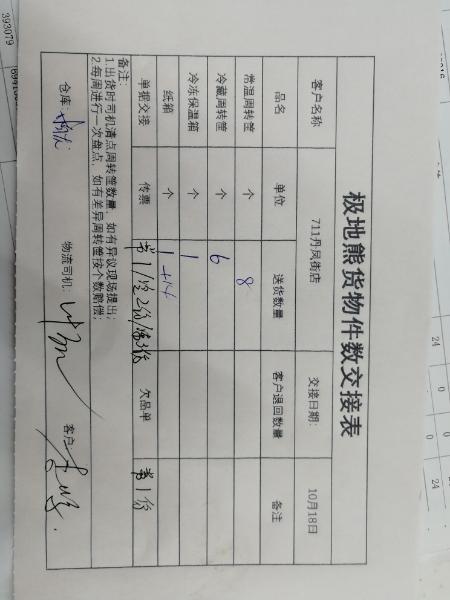 极地熊货物件数交接表
客户名称 711丹凤街店 交接日期: 10月18日
品名 单位 送货数量 客户退回数量 备注
常温周转筐 个 8
冷藏周转筐 个 6
冷冻保温箱 个 1
纸箱 个 1+14
单据交接 传票 常1/冷2份/冻3份 欠品单 常1份
备注:
1.出货时司机清点周转筐数量,如有异议现场提出;
2.每周进行一次盘点,如有差异周转筐按个数赔偿;
仓库: 物流司机: 客户:
393079
24
0
0
24